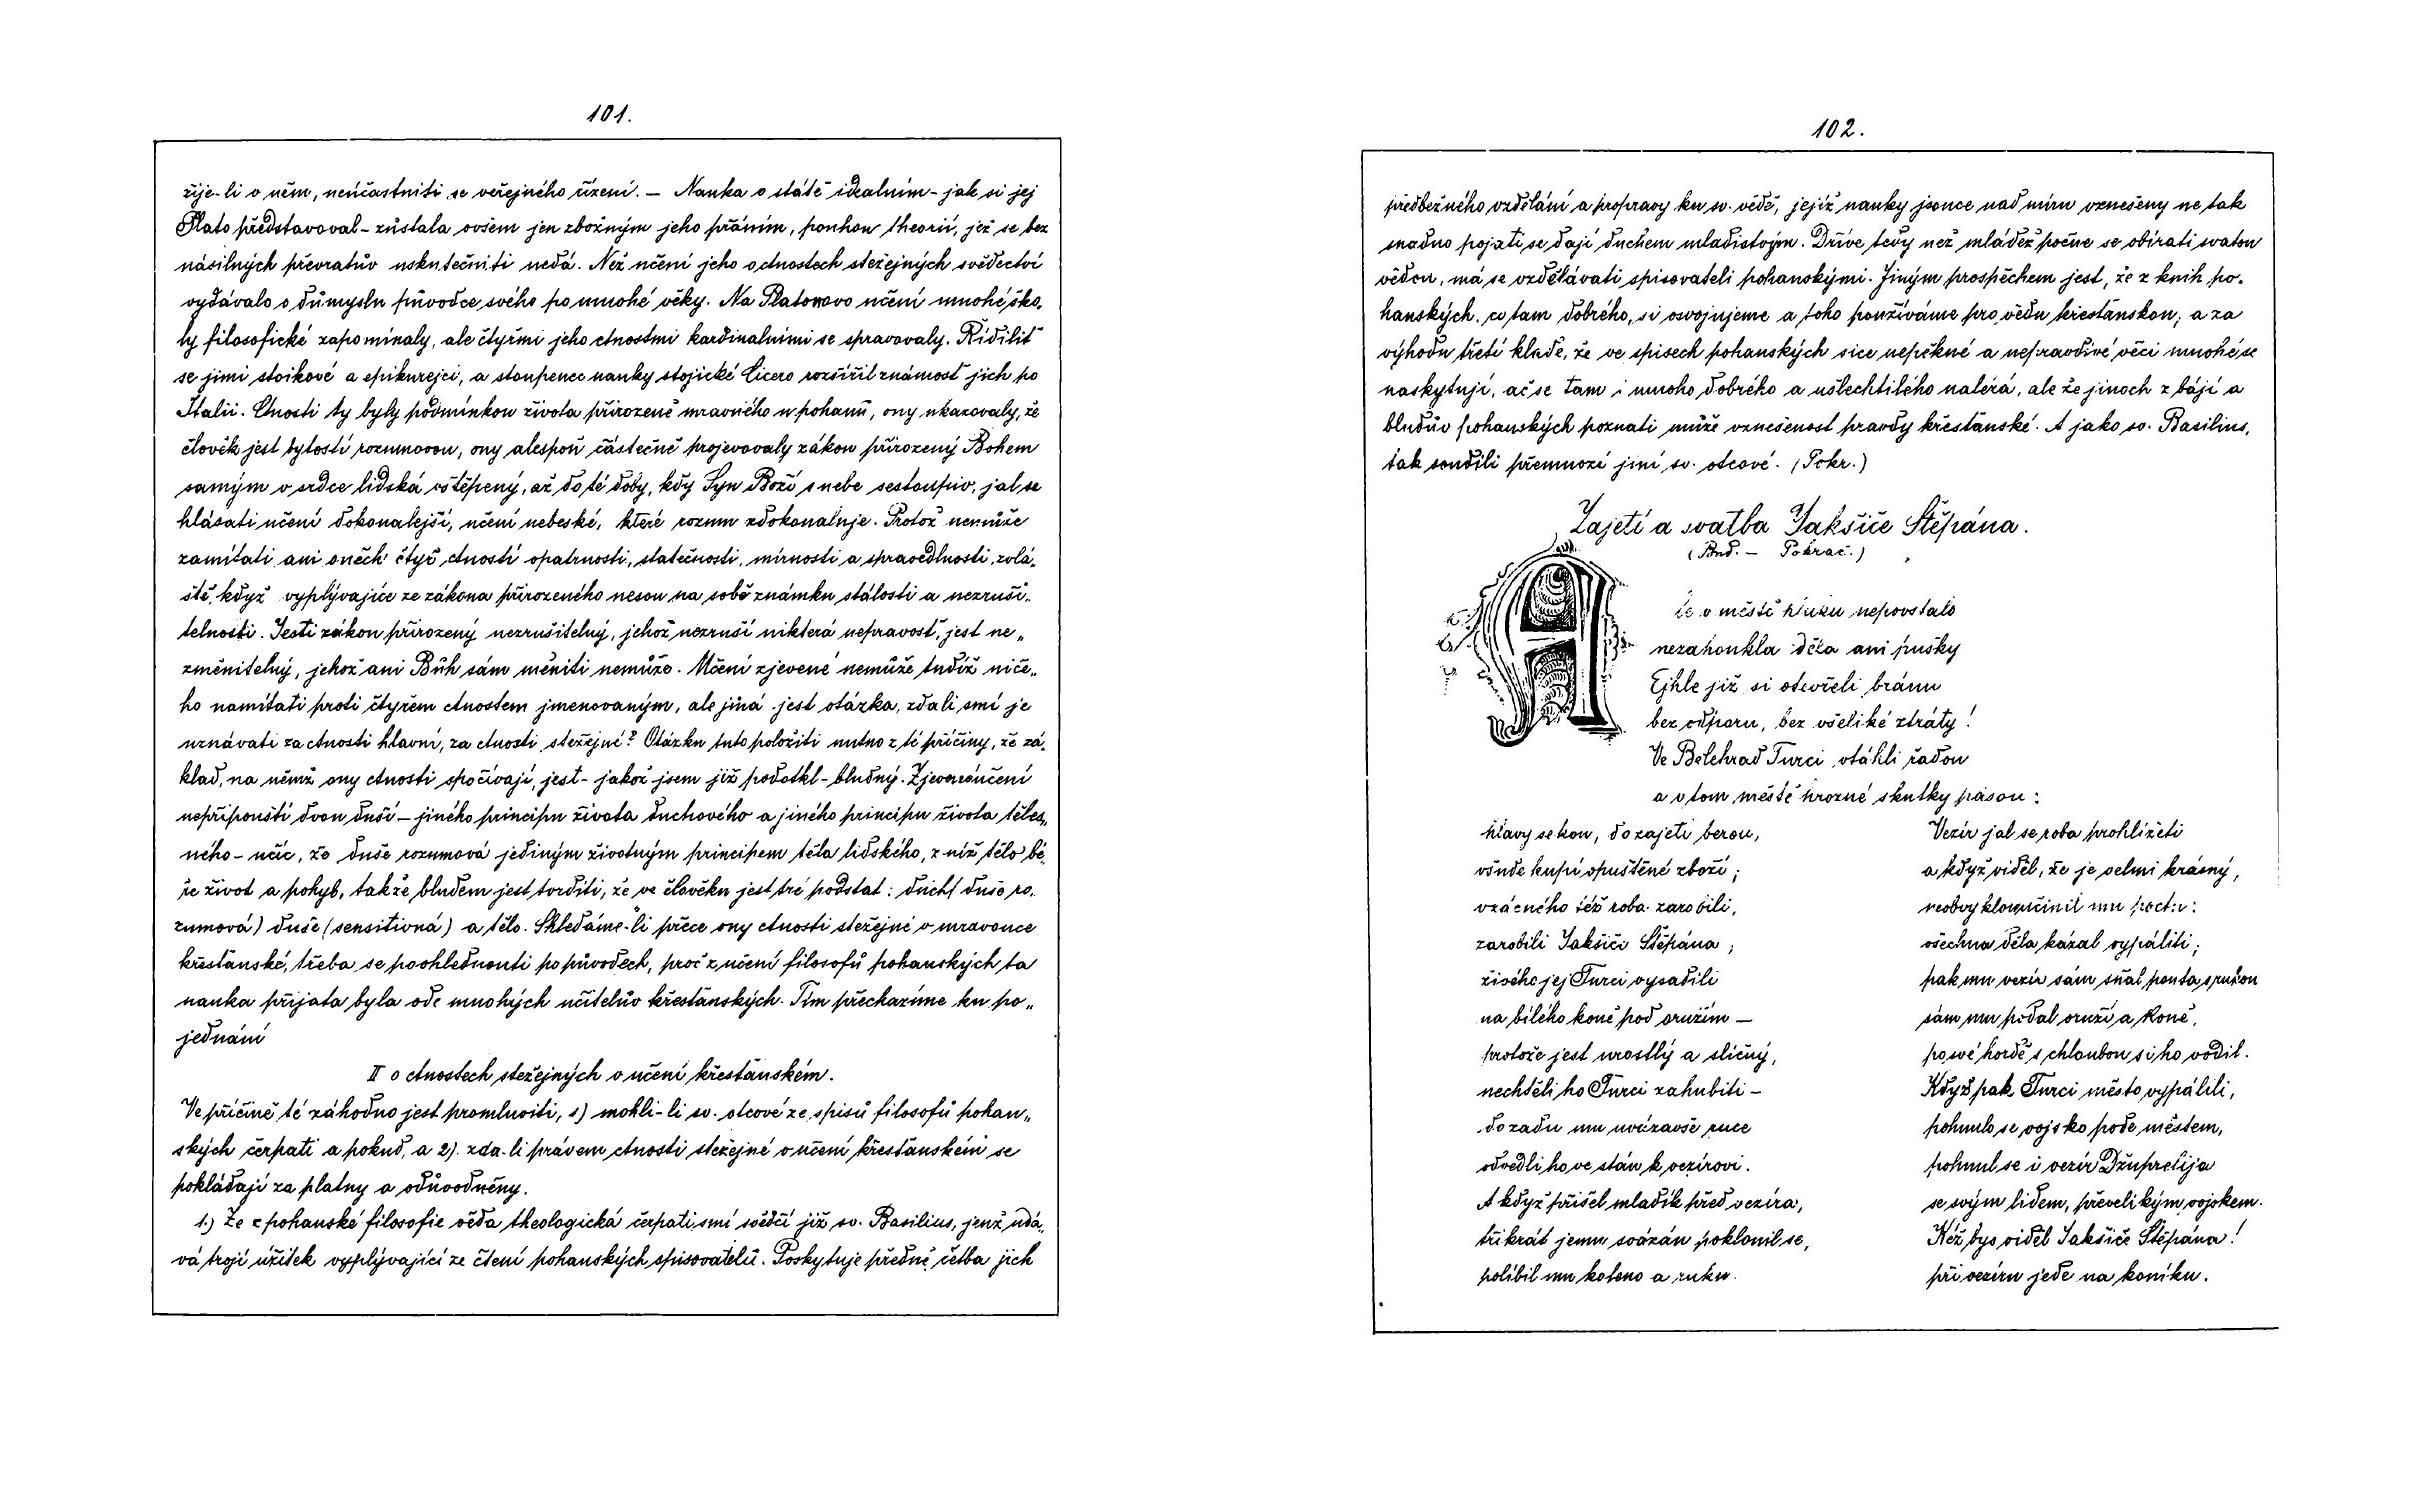 101.
žije-li v něm, neúčastniti se veřejného řízení. — Nauka o státě idealním - jak si jej
Plato představoval - zůstala ovšem jen zbožným jeho přáním, pouhou theorií, jež se bez
násilných převratův uskutečniti nedá. Než učení jeho o ctnostech stežejných svědectví
vydávalo o důmyslu původce svého po mnohé věky. Na Platonovo učení mnohé ško„
ly filosofické zapomínaly, ale čtyřmi jeho ctnostmi kardinalními se spravovaly. Řídiliť
se jimi stoikové a epikurejci, a stoupenec nauky stojické Cicero rozšířil známosť jich po
Italii. Ctnosti ty byly podmínkou života přirozeně mravného u pohanů, ony ukazovaly, že
člověk jest bytostí rozumovou, ony alespoň částečně projevovaly zákon přirozený Bohem
samým v srdce lidská vštěpený, až do té doby, kdy Syn Boží s nebe sestoupiv, jal se
hlásati učení dokonalejší, učení nebeské, které rozum zdokonaluje. Protož nemůže
zamítati ani oněch čtyř ctností opatrnosti, statečnosti, mírnosti a spravedlnosti, zvlá„
ště, když vyplývajíce ze zákona přirozeného nesou na sobě známku stálosti a nezruši„
telnosti. Jestiť zákon přirozený nezrušitelný, jehož nezruší nikterá nepravosť, jest ne„
změnitelný, jehož ani Bůh sám měniti nemůže. Učení zjevené nemůže tudíž niče„
ho namítati proti čtyřem ctnostem jmenovaným, ale jiná jest otázka, zdali smí je
uznávati za ctnosti hlavní, za ctnosti stežejné? Otázku tuto položiti nutno z té příčiny, že zá„
klad, na němž ony ctnosti spočívají, jest - jakož jsem již podotkl - bludný. Zjevené učení
nepřipouští dvou duší — jiného principu života duchového a jiného principu života těles„
ného - učíc, že duše rozumová jediným životným principem těla lidského, z níž tělo bé„
ře život a pohyb, takže bludem jest tvrditi, že ve člověku jest tré podstat: duch (duše ro„
zumová) duše (sensitivná) a tělo. Shledáme-li přece ony ctnosti stežejné v mravouce
křesťanské, třeba se poohlednouti po původech, proč z učení filosofů pohanských ta
nauka přijata byla ode mnohých učitelův křesťanských. Tím přecházíme ku po„
jednání
II o ctnostech stežejných v učení křesťanském.
Ve příčině té záhodno jest promluviti, 1) mohli-li sv. otcové ze spisů filosofů pohan„
ských čerpati a pokud, a 2). zda-li právem ctnosti stežejné v učení křesťanském se
pokládají za platny a odůvodněny.
1.) Že z pohanské filosofie věda theologická čerpati smí svědčí již sv. Basilius, jenž udá„
vá trojí užitek vyplývající ze čtení pohanských spisovatelů. Poskytuje předně četba jich
102.
předběžného vzdělání a propravy ku sv. vědě, jejíž nauky jsouce nad míru vznešeny ne tak
snadno pojati se dají duchem mladistvým. Dříve tedy než mládež počne se obírati svatou
vědou, má se vzdělávati spisovateli pohanskými. Jiným prospěchem jest, že z knih po„
hanských, co tam dobrého, si osvojujeme a toho používáme pro vědu křesťanskou; a za
výhodu třetí klade, že ve spisech pohanských sice nepěkné a nepravdivé věci mnohé se
naskytují, ač se tam i mnoho dobrého a ušlechtilého nalézá, ale že jinoch z bájí a
bludův pohanských poznati může vznešenost pravdy křesťanské. A jako sv. Basilius,
tak soudili přemnozí jiní sv. otcové. (Pokr.)
Zajetí a svatba Jakšiče Štěpána.
(Pod. — Pokrač.)
A že v městě hluku nepovstalo
nezahoukla děla ani pušky
Ejhle již si otevřeli bránu
bez odporu, bez všeliké ztráty!
Ve Belehrad Turci vtáhli řadou
a v tom městě hrozné skutky pásou:
hlavy sekou, do zajetí berou,
všude kupí opuštěné zboží;
vzácného též roba zarobili,
zarobili Jakšiči Štěpána;
živého jej Turci vysadili
na bílého koně pod oružím —
protože jest urostlý a sličný,
nechtěli ho Turci zahubiti —
do zadu mu uvázavše ruce
odvedli ho ve stán k vezírovi.
A když přišel mladík před vezíra,
třikrát jemu svázán poklonil se,
políbil mu koleno a ruku.
Vezír jal se roba prohlížeti
a když viděl, že je velmi krásný,
neobvyklou učinil mu poctu:
všechna děla kázal vypáliti;
pak mu vezír sám sňal pouta s rukou
sám mu podal oruží a koně,
po své hordě s chloubou si ho vodil.
Když pak Turci město vypálili,
pohnulo se vojsko pode městem,
pohnul se i vezír Džuprelija
se svým lidem, převelikým vojskem.
Kéž bys viděl Jakšiče Štěpána!
při vezíru jede na koníku.